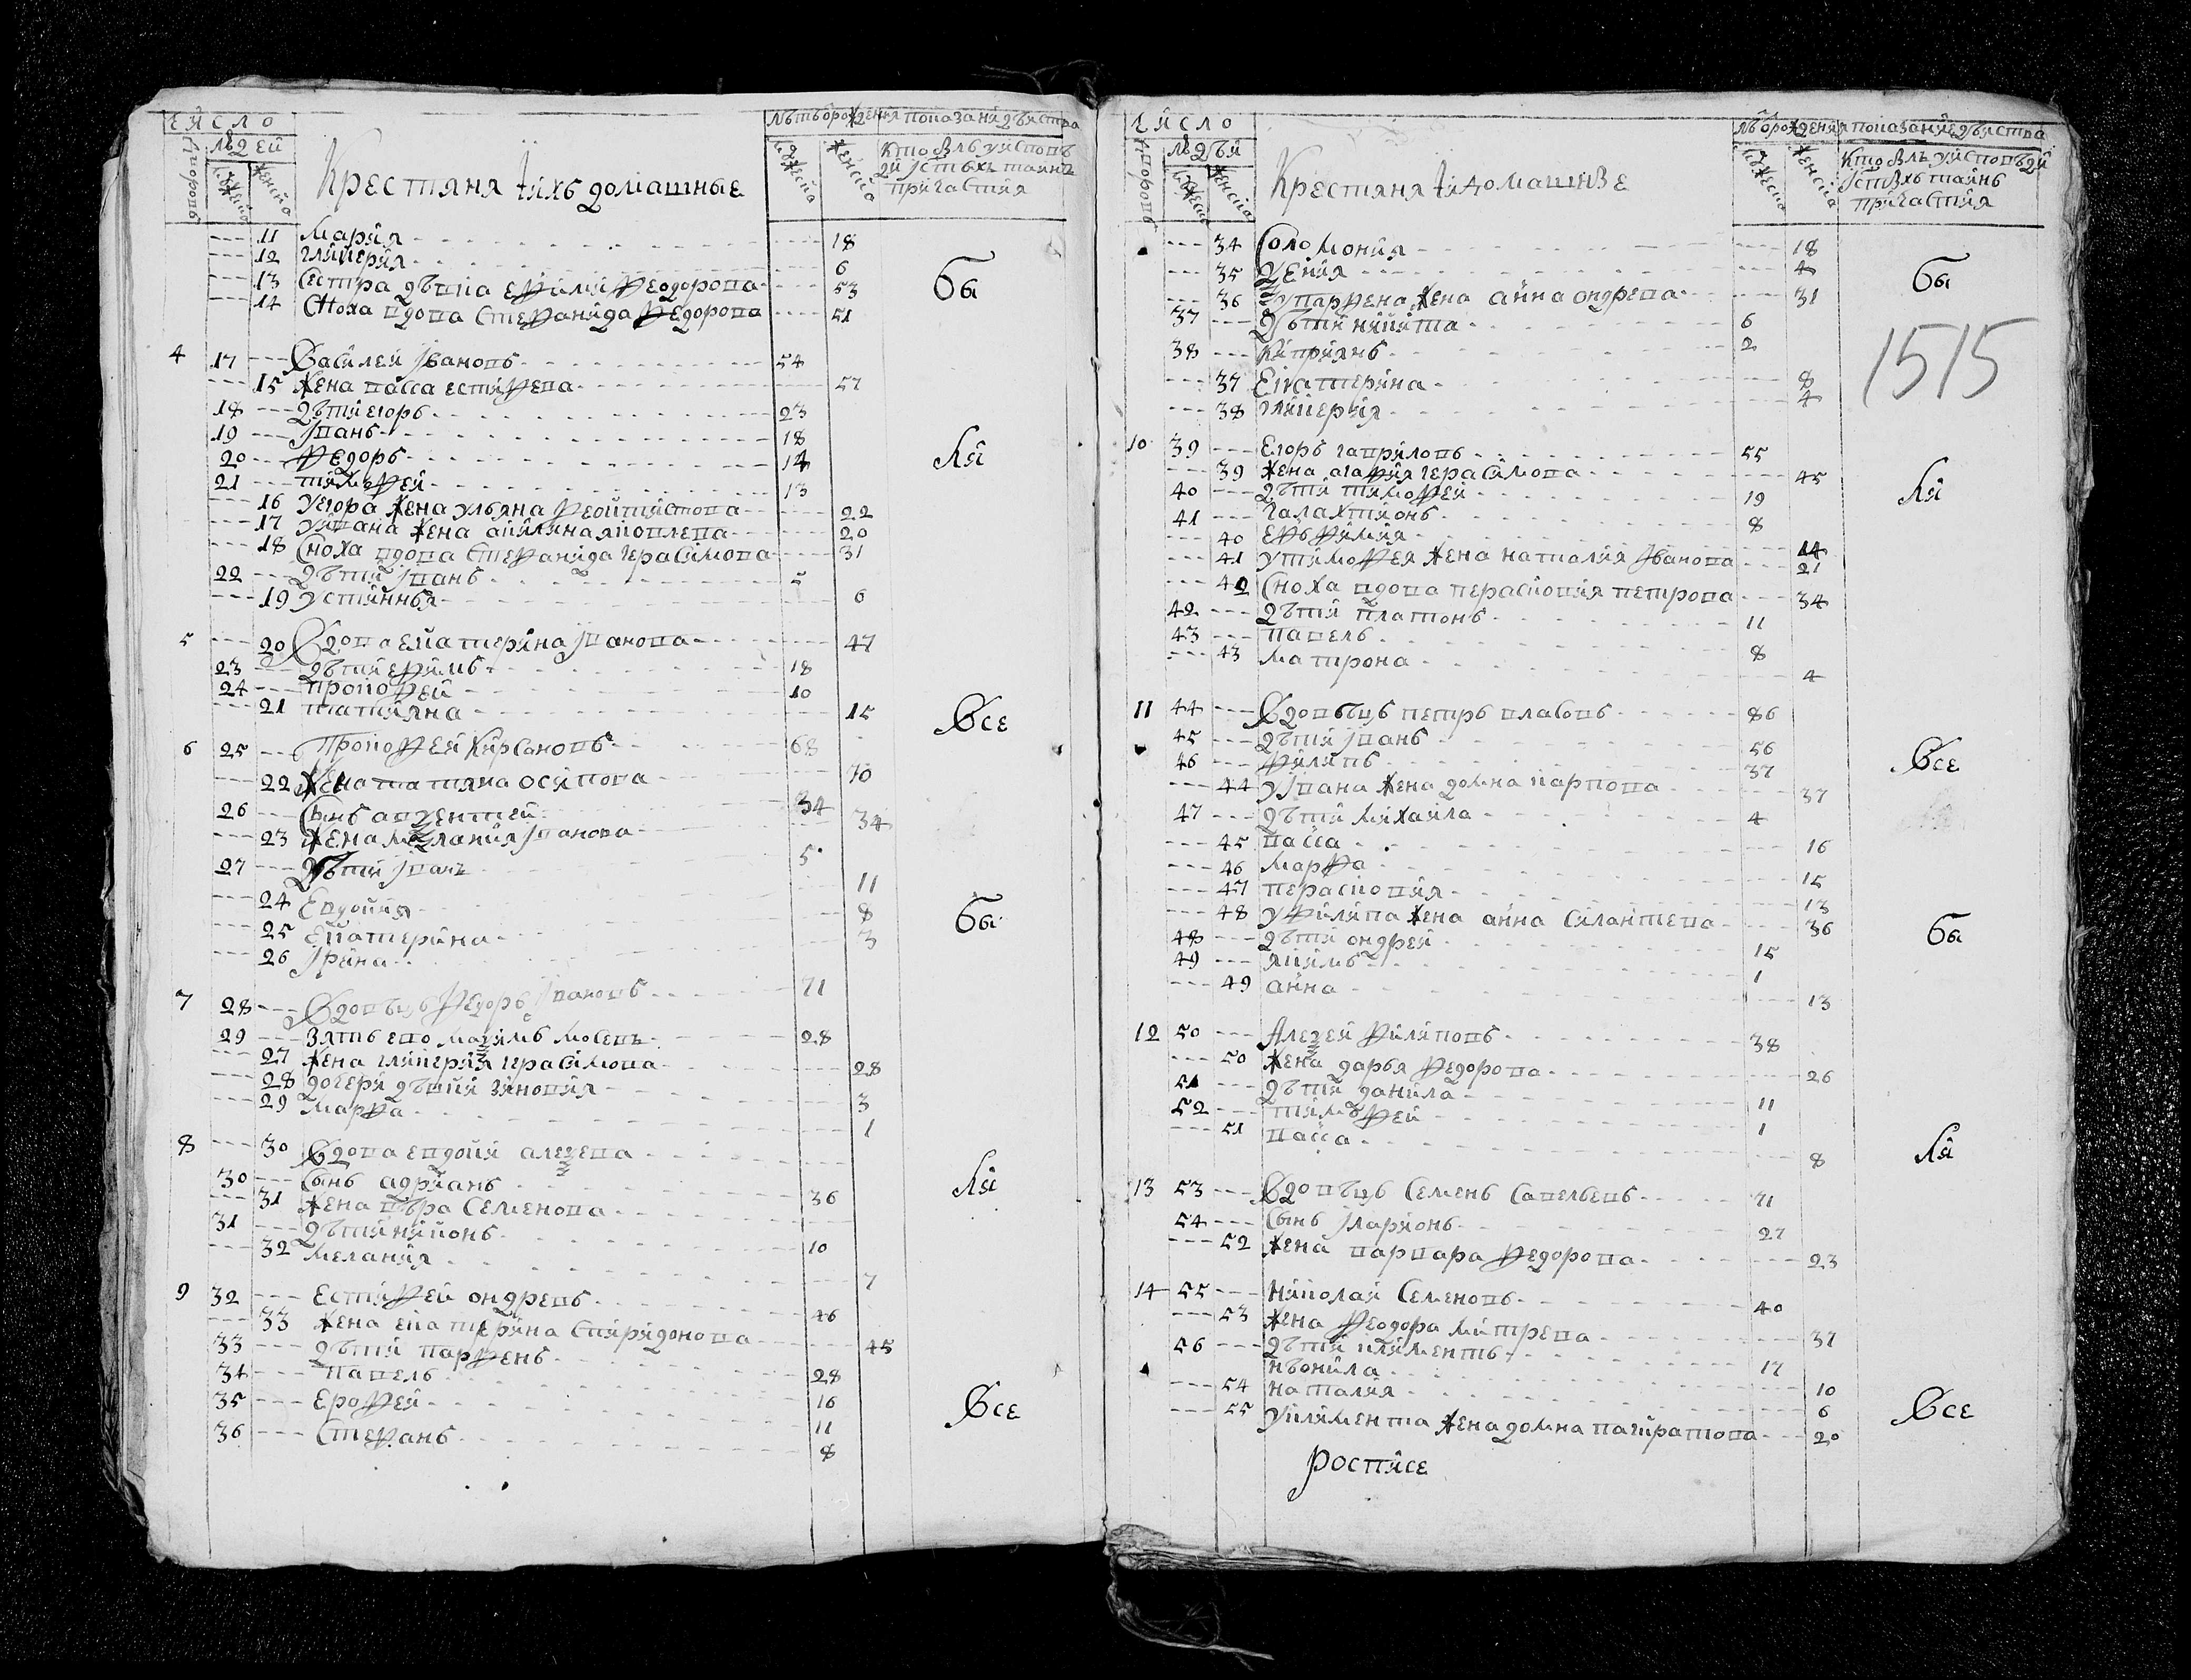 число
людей
Крестяня и ихъ домашные
лѣтъ рождения
показание дѣиства
кто былъ у исповѣ
ди и стыхъ таинъ
причастия
11 Мария 18
12 гликерия 6
13 Сестра дѣвка ефимия феодорова 53
14 Сноха вдова стефанида федорова 51
4 17 Василеи Iвановъ 54
15 жена васса естифева 57
18 дѣти егоръ 23
19 Iванъ 18
20 федоръ 14
21 тимофеи 13
16 у егора жена ульяна феоктистова 22
17 у ивана жена акилина яковлева 20
18 Сноха вдова стефанида герасимова 31
22 дѣти Iванъ 5
19 устиннья 6
5 20 Вдова екатерина Iванова 47
23 дѣти ефимъ 18
24 прокофеи 10
21 татияна 15
6 25 Прокофеи Кирсановъ 68
22 жена татияна осипова 70
26 Сынъ авксентеи 34
23 жена мелания Iванова 34
27 дѣти Iванъ 5
24 Евдокия 11
25 екатерина 8
26 Iрина 3
7 28 Вдовецъ федоръ Iвановъ 71
29 зять ево максимъ мосеевъ 28
27 жена гликерия герасимова 28
28 дочери дѣвки зиновия 3
29 марфа 1
8 30 Вдова евдокия алексева
30 Сынъ адриянъ 36
31 жена вѣра Семенова
31 дѣти никонъ 10
32 мелания 7
9 32 Естифеи ондревъ 46
33 жена екатерина спиридонова 45
33 дѣти парфенъ 28
34 павелъ 16
35 Ерофеи 11
36 Стефанъ 8
бы
ли
Все
бы
ли
Все
число
людѣи
Крестяня и домашние
лѣтъ рождения
показание дѣиства
кто былъ у исповѣди
и стыхъ таинъ
причастия
34 Соломония 18
35 ксения 4
36 у парфена жена анна ондрева 31
37 дѣти никита 6
38 киприянъ 2
37 Екатерина 8
38 гликерия 4
10 39 Егоръ гавриловъ 55
39 жена агафия герасимова 45
40 дѣти тимофеи 19
41 галахтионъ 8
40 ефимия 14
41 у тимофея жена наталия Iванова 21
42 Сноха вдова перасковия петрова 34
42 дѣти платонъ 11
43 павелъ 8
43 матрона 4
11 44 Вдовецъ петръ власовъ 86
45 дѣти Iванъ 56
46 филипъ 37
44 у Iвана жена домна карпова 37
47 дѣти михаила 4
45 васса 16
46 марфа 15
47 перасковия 13
48 у филипа жена анна силантева 36
48 дѣти ондреи 15
49 якимъ 1
49 анна 13
12 50 Алексеи филиповъ 38
50 жена дарья федорова 26
51 дѣти данила 11
52 тимофеи 1
51 васса 8
13 53 Вдовецъ Семенъ Савельевъ 71
54 Сынъ Iларионъ 27
52 жена варвара федорова 23
14 55 Николаи Семеновъ 40
53 жена феодора митрева 37
56 дѣти климентъ 17
нѣонила 10
54 наталия 6
55 у климента жена домна панкратова 20
росписе
бы
1515
ли
Все
бы
ли
Все